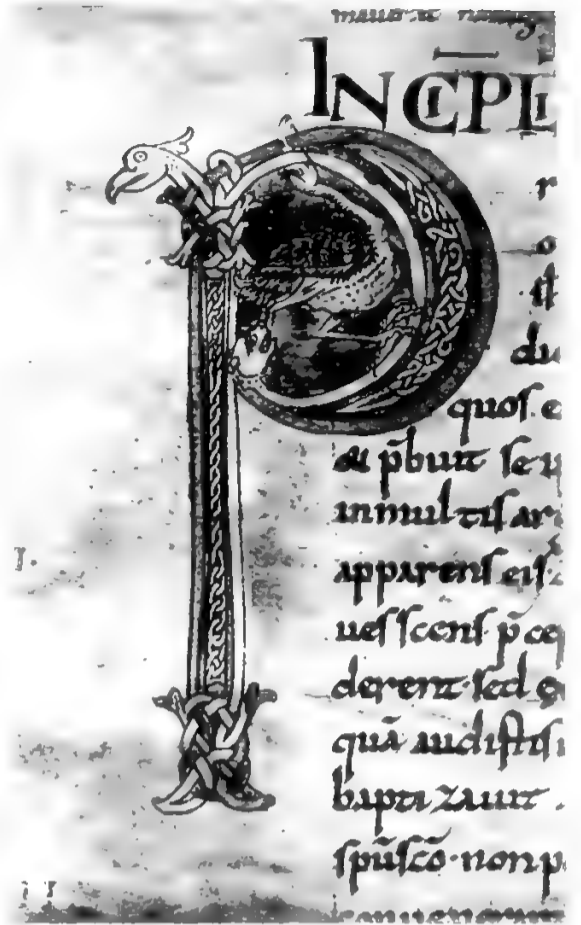 INCIP̄ LI
r
o
st
du
quos e
& p̄buit se u
inmultis ar
apparens eis·
uescens p̄cep
derent· sed e
quā audistis
baptizauit
sp̄uscō· non p
conuenerant